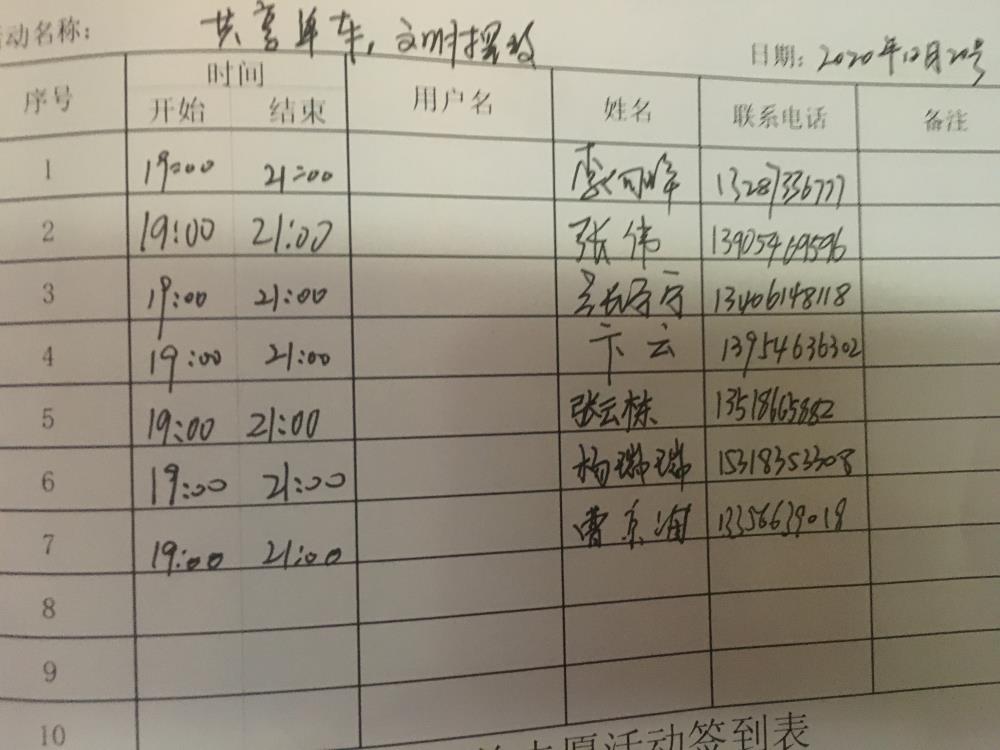 活动名称： 共享单车，文明摆放 日期：2020年12月20号
序号 时间 用户名 姓名 联系电话 备注
开始 结束
1 19:00 21:00 13287336777
2 19:00 21:00 张伟 13905469596
3 19:00 21:00 13406148118
4 19:00 21:00 卞云 13954636302
5 19:00 21:00 张云栋 13518665882
6 19:00 21:00 杨瑞瑞 15318353308
7 19:00 21:00 曹京 13356639018
8
9
10
志愿活动签到表